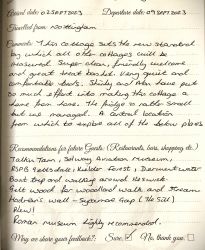 Arrival date: 02SEPT2023 Departure date: 09SEPT2023
Travelled from: Nottingham
Comments: This cottage sets the new standard
by which all other cottages will be
measured. Super clean, friendly welcome
and great treat basket. Very quiet and
comfortable beds. Shirley and Alan have put
so much effort into making this cottage
home from home. The fridge is rather small
but we managed. A central location
from which to explore all of the below places
Recommendations for future Guests: (Restaurants, bars, shopping etc.)
Talkin Tarn, Solway Aviation Museum,
RSPB Geltsdale, Kielder Forest, Derwentwater
Boat trip and walking around Keswick
Gelt Wood for woodland walk and stream
Hadrians wall - Sycamore Gap (Hill)
Roman museum highly recommended.
May we share your feedback?: Sure, No, thank you